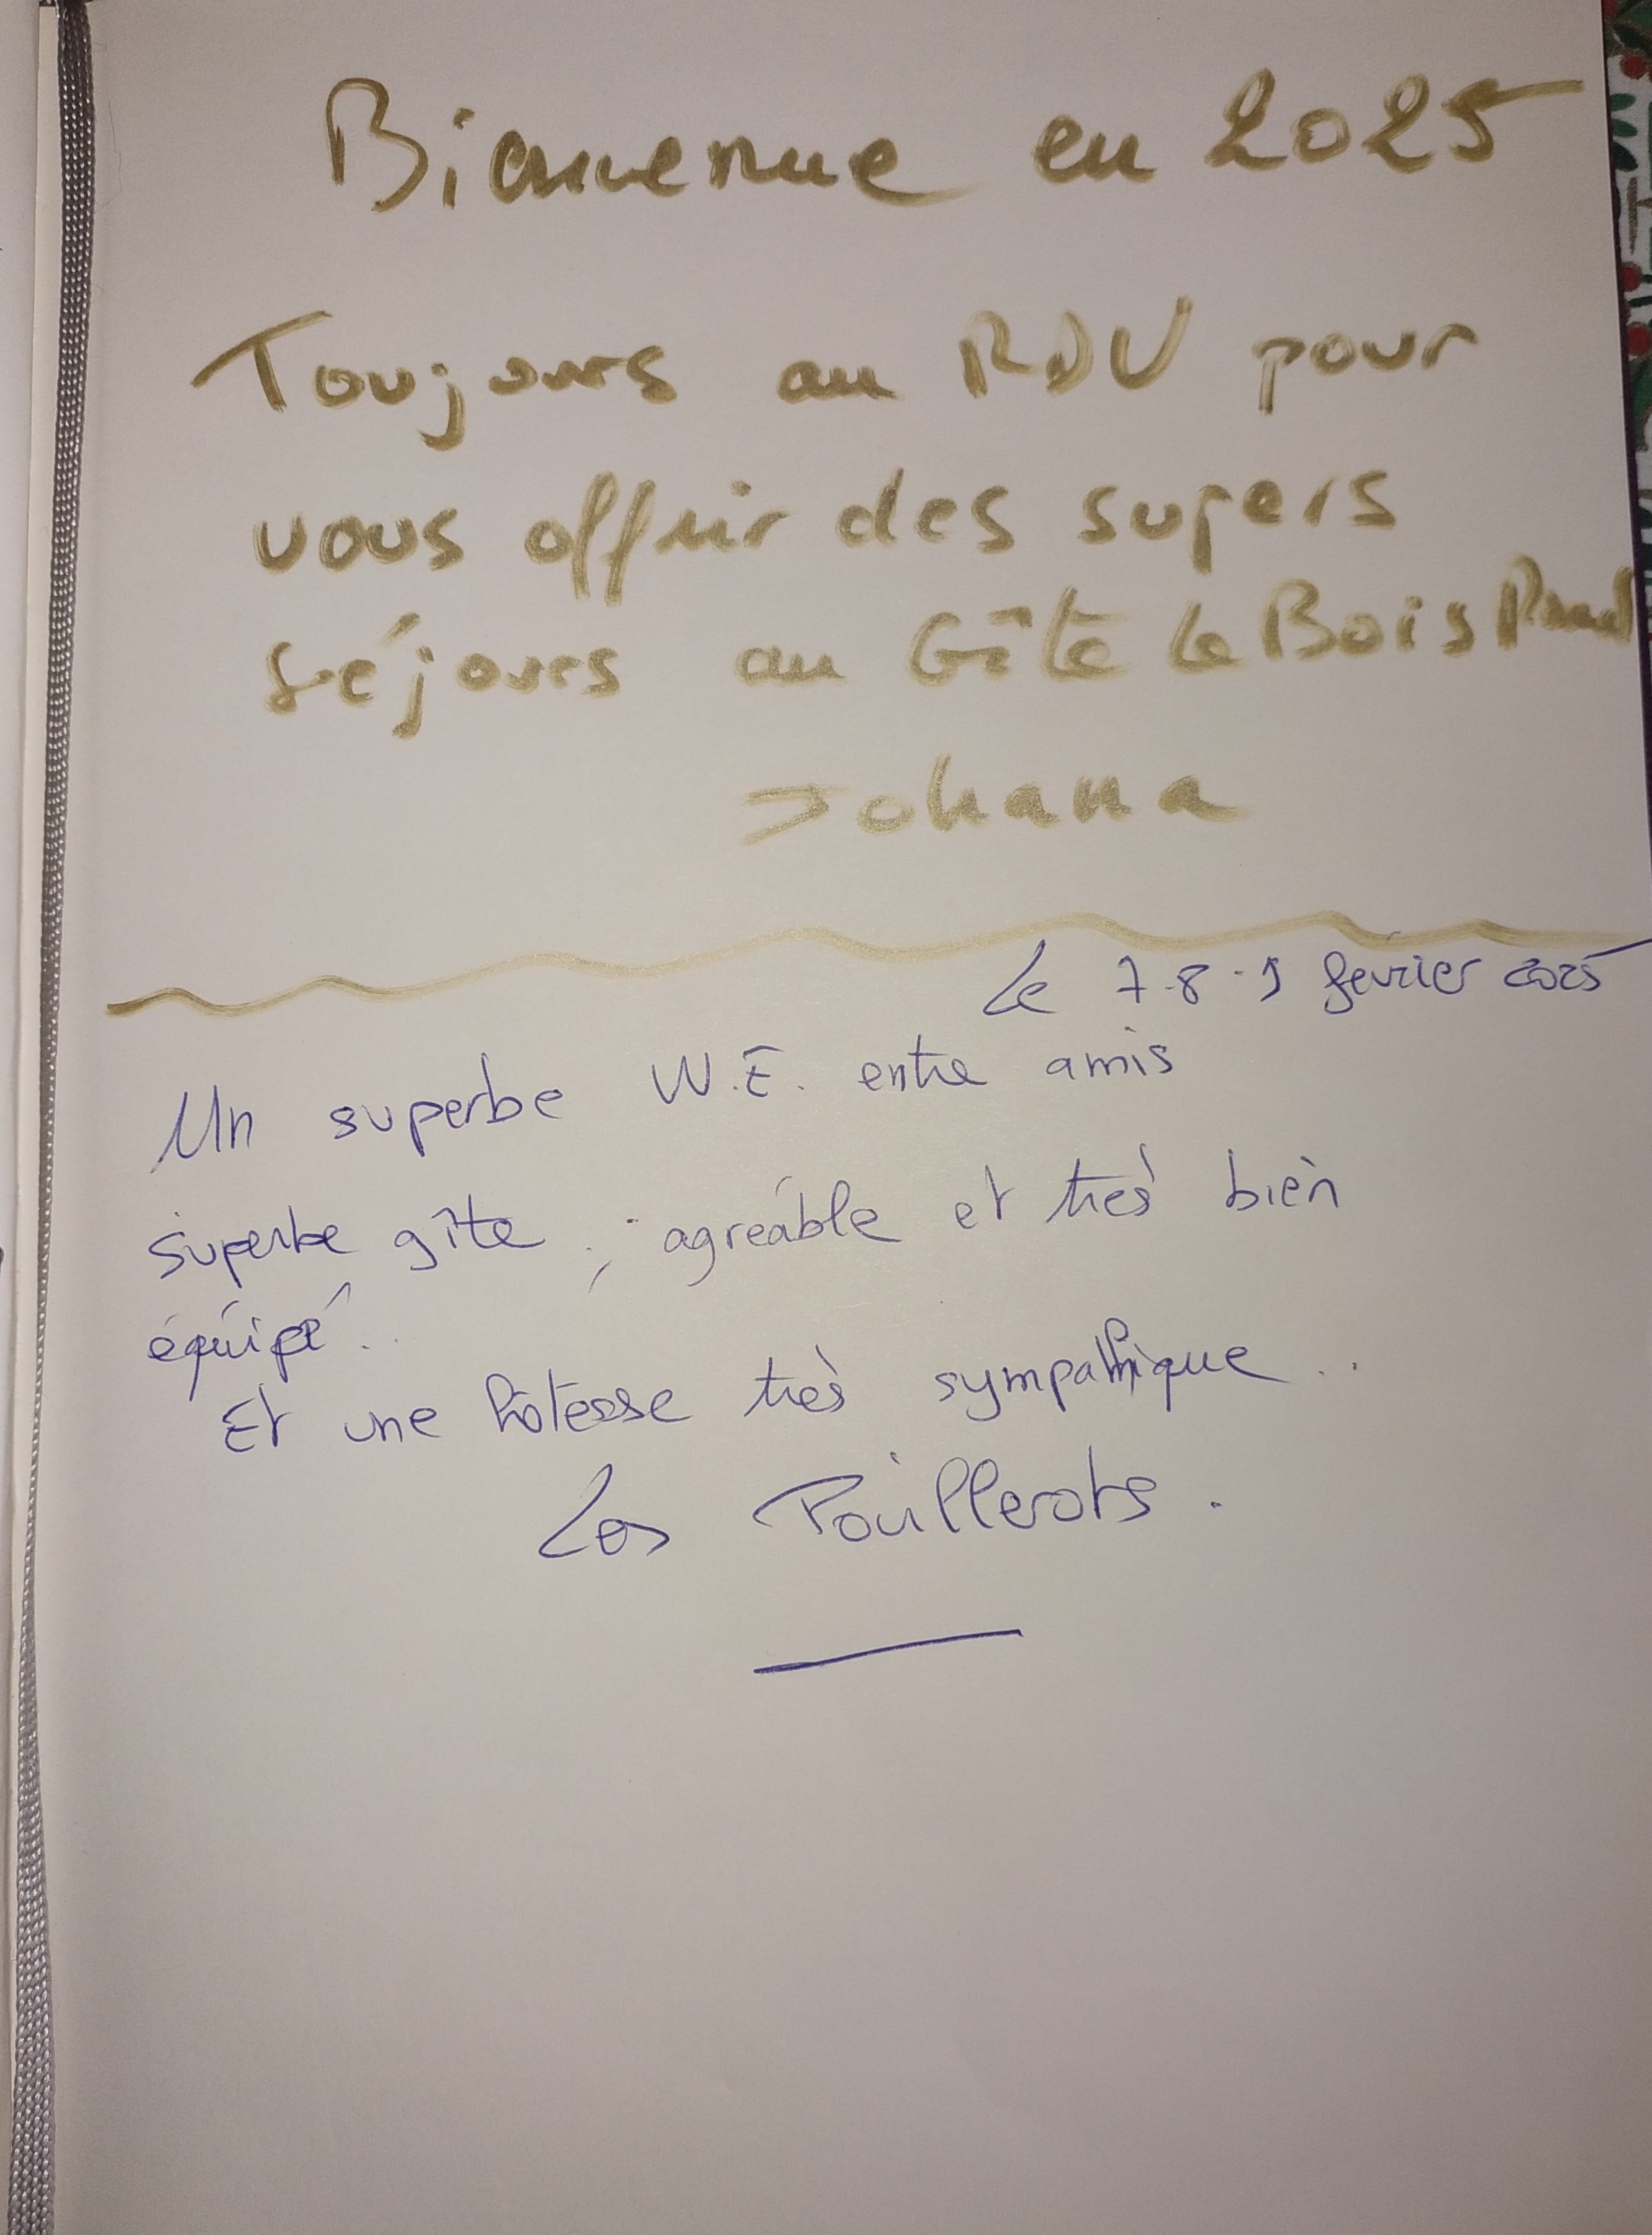 Bienvenue en 2025
Toujours au RDV pour
vous offrir des supers
séjours au Gîte Le Bois
Johana
Le 7-8-9 février 2025
Un superbe W.E. entre amis
superbe gîte, agréable et très bien
équipé..
Et une hôtesse très sympathique..
Les Pouillerots.